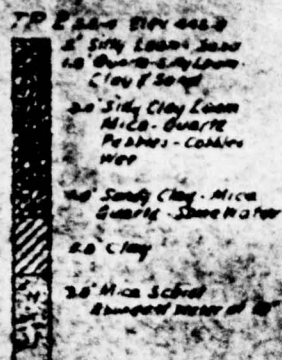 TP 2 Elev
2' Silty Loam - Sand
Quartz - Silty Loam -
Clay & Sand
2.0' Silty Clay Loam
Mica - Quartz
Pebbles - Cobbles
Wet
Sandy Clay - Mica
Quartz - Some Water
Clay
2.0' Mica Schist
Abundant Water at